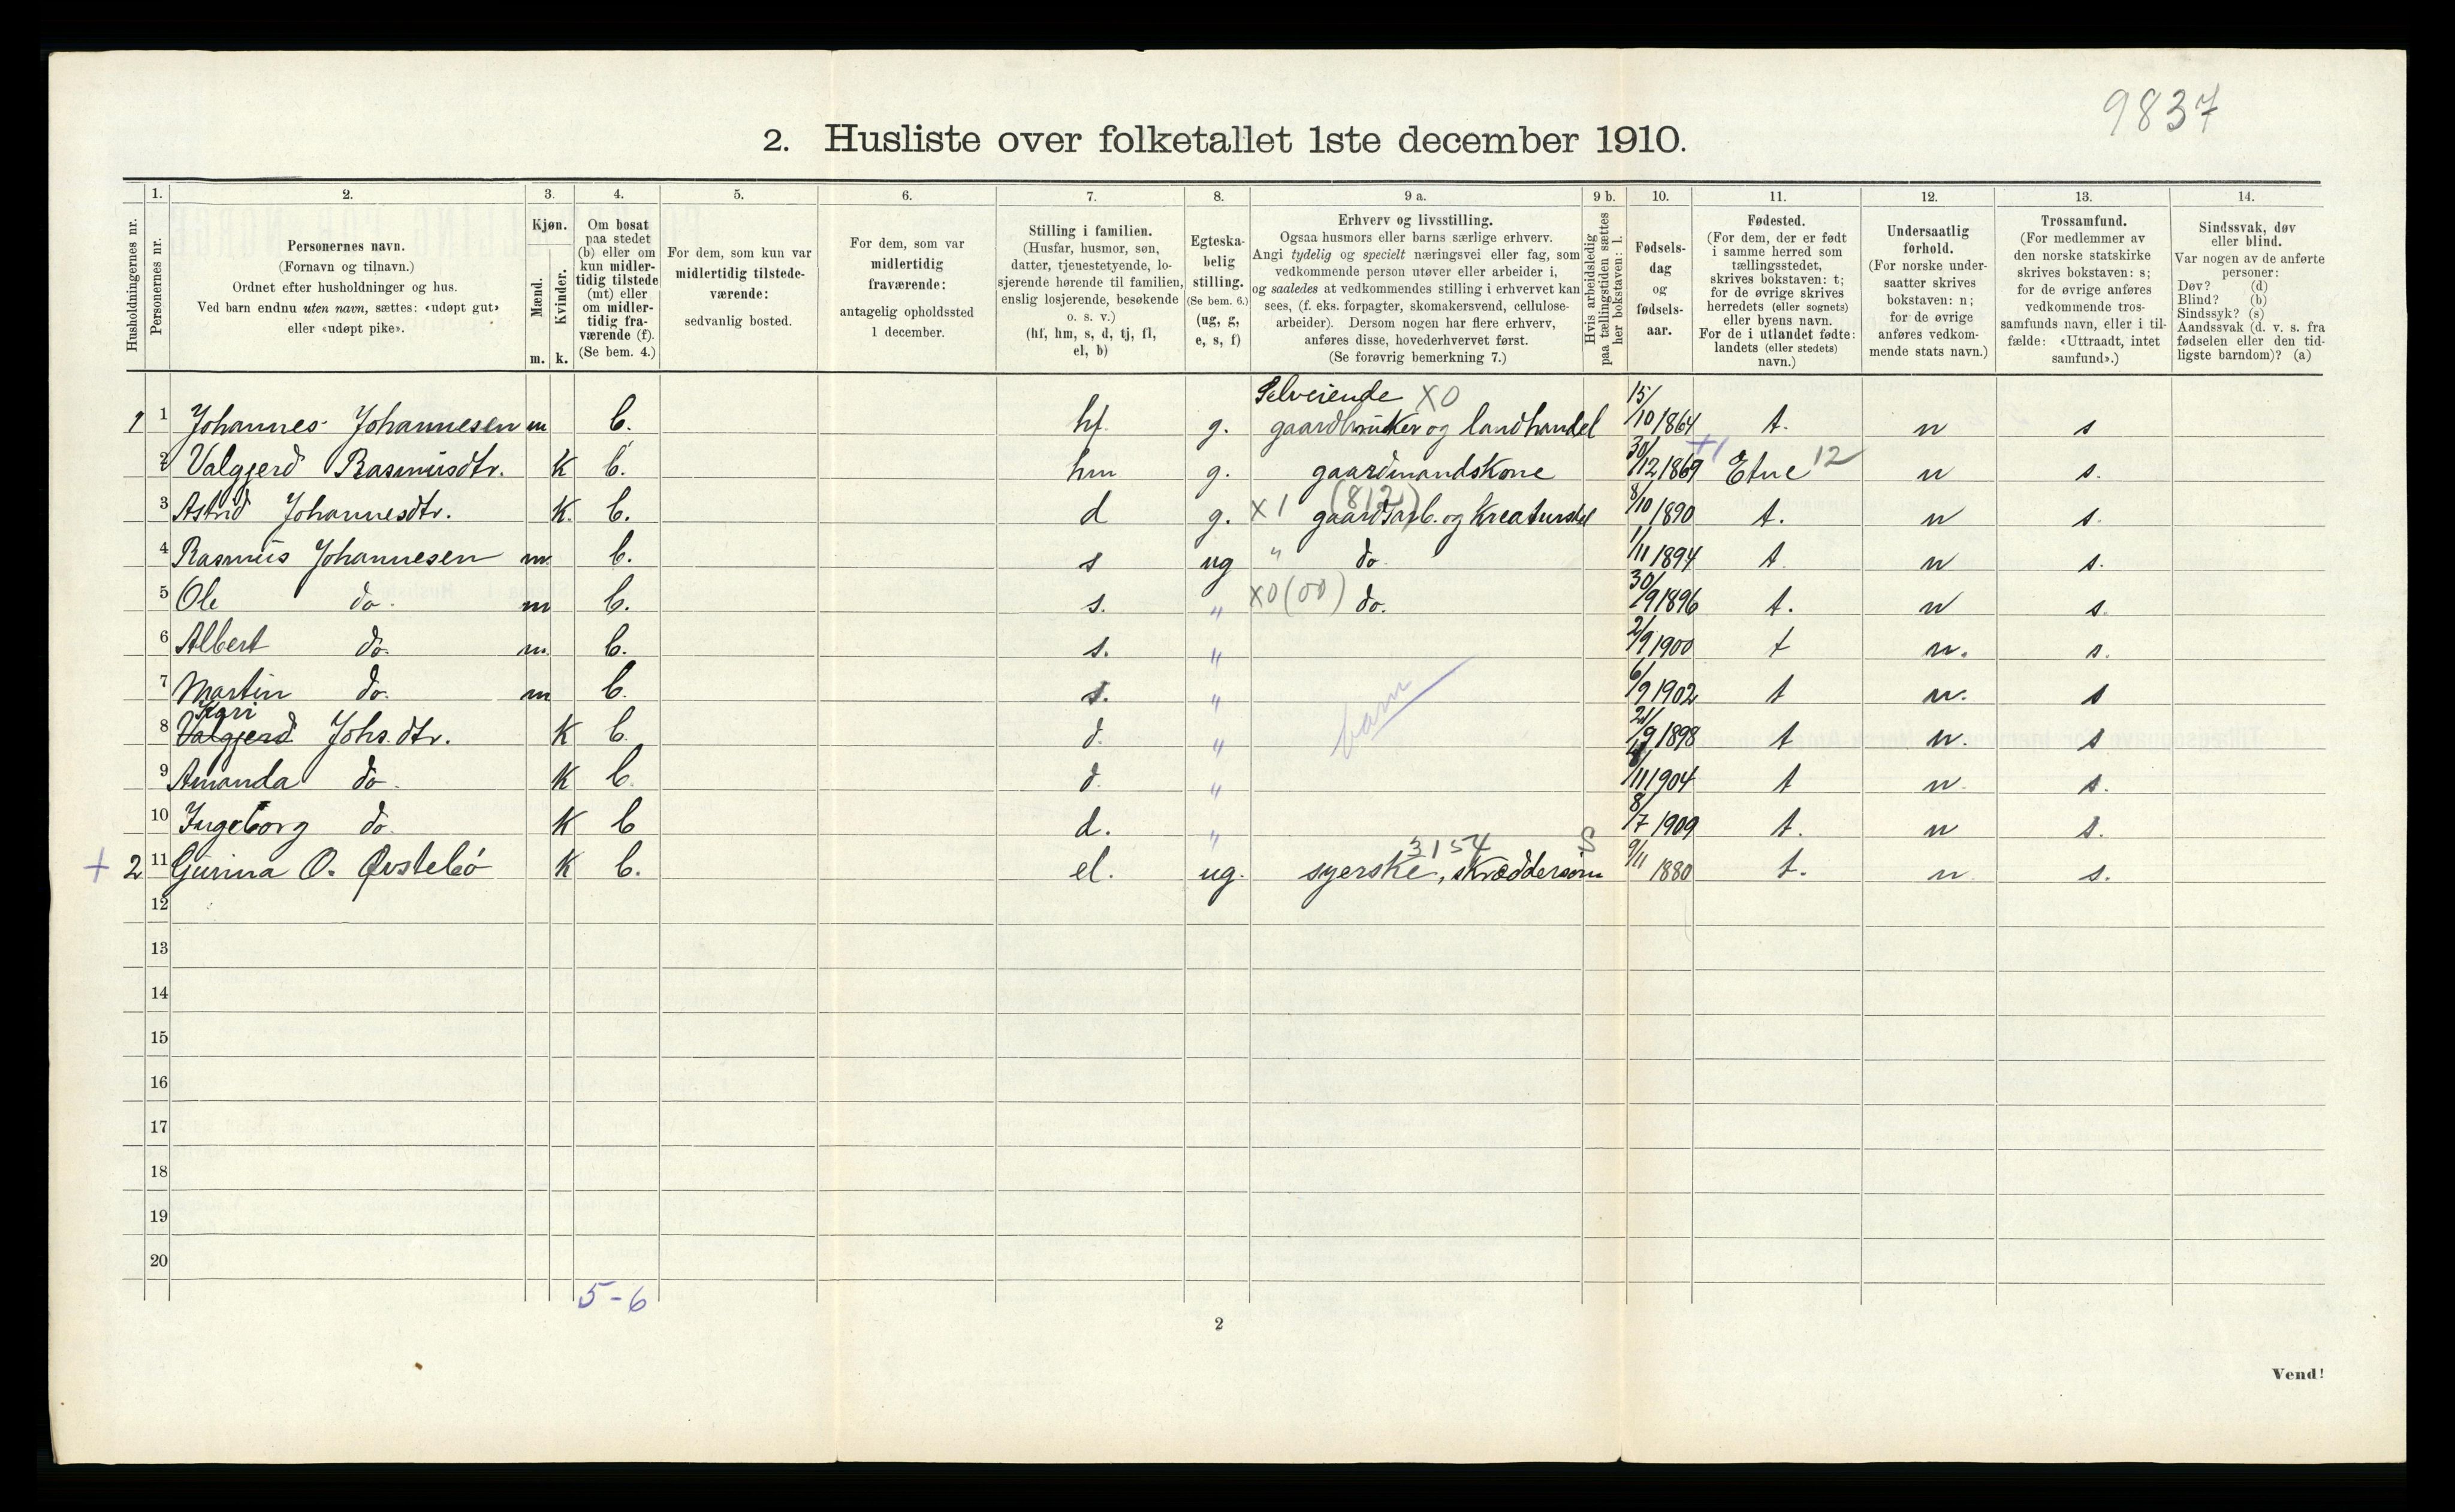 9837
2. Husliste over folketallet 1ste december 1910.
Husholdningernes nr.
1. Personernes nr.
2. Personernes navn. (Fornavn og tilnavn.) Ordnet efter husholdninger og hus. Ved barn endnu uten navn, sættes: «udøpt gut» eller «udøpt pike».
3. Kjøn. Mænd. m. Kvinder. k.
4. Om bosat paa stedet (b) eller om kun midlertidig tilstede (mt) eller om midlertidig fraværende (f). (Se bem. 4.)
5. For dem, som kun var midlertidig tilstedeværende: sedvanlig bosted.
6. For dem, som var midlertidig fraværende: antagelig opholdssted 1 december.
7. Stilling i familien. (Husfar, husmor, søn, datter, tjenestetyende, losjerende hørende til familien, enslig losjerende, besøkende o. s. v.) (hf, hm, s, d, tj, fl, el, b)
8. Egteskabelig stilling. (Se bem. 6.) (ug, g, e, s, f)
9 a. Erhverv og livsstilling. Ogsaa husmors eller barns særlige erhverv. Angi tydelig og specielt næringsvei eller fag, som vedkommende person utøver eller arbeider i, og saaledes at vedkommendes stilling i erhvervet kan sees, (f. eks. forpagter, skomakersvend, cellulosearbeider). Dersom nogen har flere erhverv, anføres disse, hovederhvervet først. (Se forøvrig bemerkning 7.)
9 b. Hvis arbeidsledig paa tællingstiden sættes her bokstaven: l.
10. Fødselsdag og fødselsaar.
11. Fødested. (For dem, der er født i samme herred som tællingsstedet, skrives bokstaven: t; for de øvrige skrives herredets (eller sognets) eller byens navn. For de i utlandet fødte: landets (eller stedets) navn.)
12. Undersaatlig forhold. (For norske undersaatter skrives bokstaven: n; for de øvrige anføres vedkommende stats navn.)
13. Trossamfund. (For medlemmer av den norske statskirke skrives bokstaven: s; for de øvrige anføres vedkommende trossamfunds navn, eller i tilfælde: «Uttraadt, intet samfund».)
14. Sindssvak, døv eller blind. Var nogen av de anførte personer: Døv? (d) Blind? (b) Sindssyk? (s) Aandssvak (d. v. s. fra fødselen eller den tidligste barndom)? (a)
Selveiende X0
1 1 Johannes Johannesen m b. hf. g. gaardbruker og landhandel 15/10 1864 t. n s
2 Valgjerd Rasmusdtr. k b. hm g. gaardmandskone 30/12 1869 +1 Etne 12 n s.
3 Astrid Johannesdtr. k. b. d g. X1 (812) gaardsarb. og kreaturstel 8/10 1890 t. n s.
4 Rasmus Johannesen m. b. s ug " do. 1/11 1894 t. n s.
5 Ole do. m b. s. " X0 (00) do. 30/9 1896 t. n s.
6 Albert do. m. b. s. " 2/9 1900 t n. s.
7 Martin do. m b. s. " barn 6/9 1902 t n. s
Kari
8 Valgjerd Johs.dtr. k b. d. " 21/9 1898 t n. s
9 Amanda do. k b. d. " /11 1904 t n. s.
10 Ingeborg do. k b d. " 8/7 1909 t. n s.
3154
+ 2 11 Gurina O. Øvstebø k b. el. ug. syerske, skræddersøm 9/11 1880 t. n. s.
12
13
14
15
16
17
18
19
20
5-6
2
Vend!